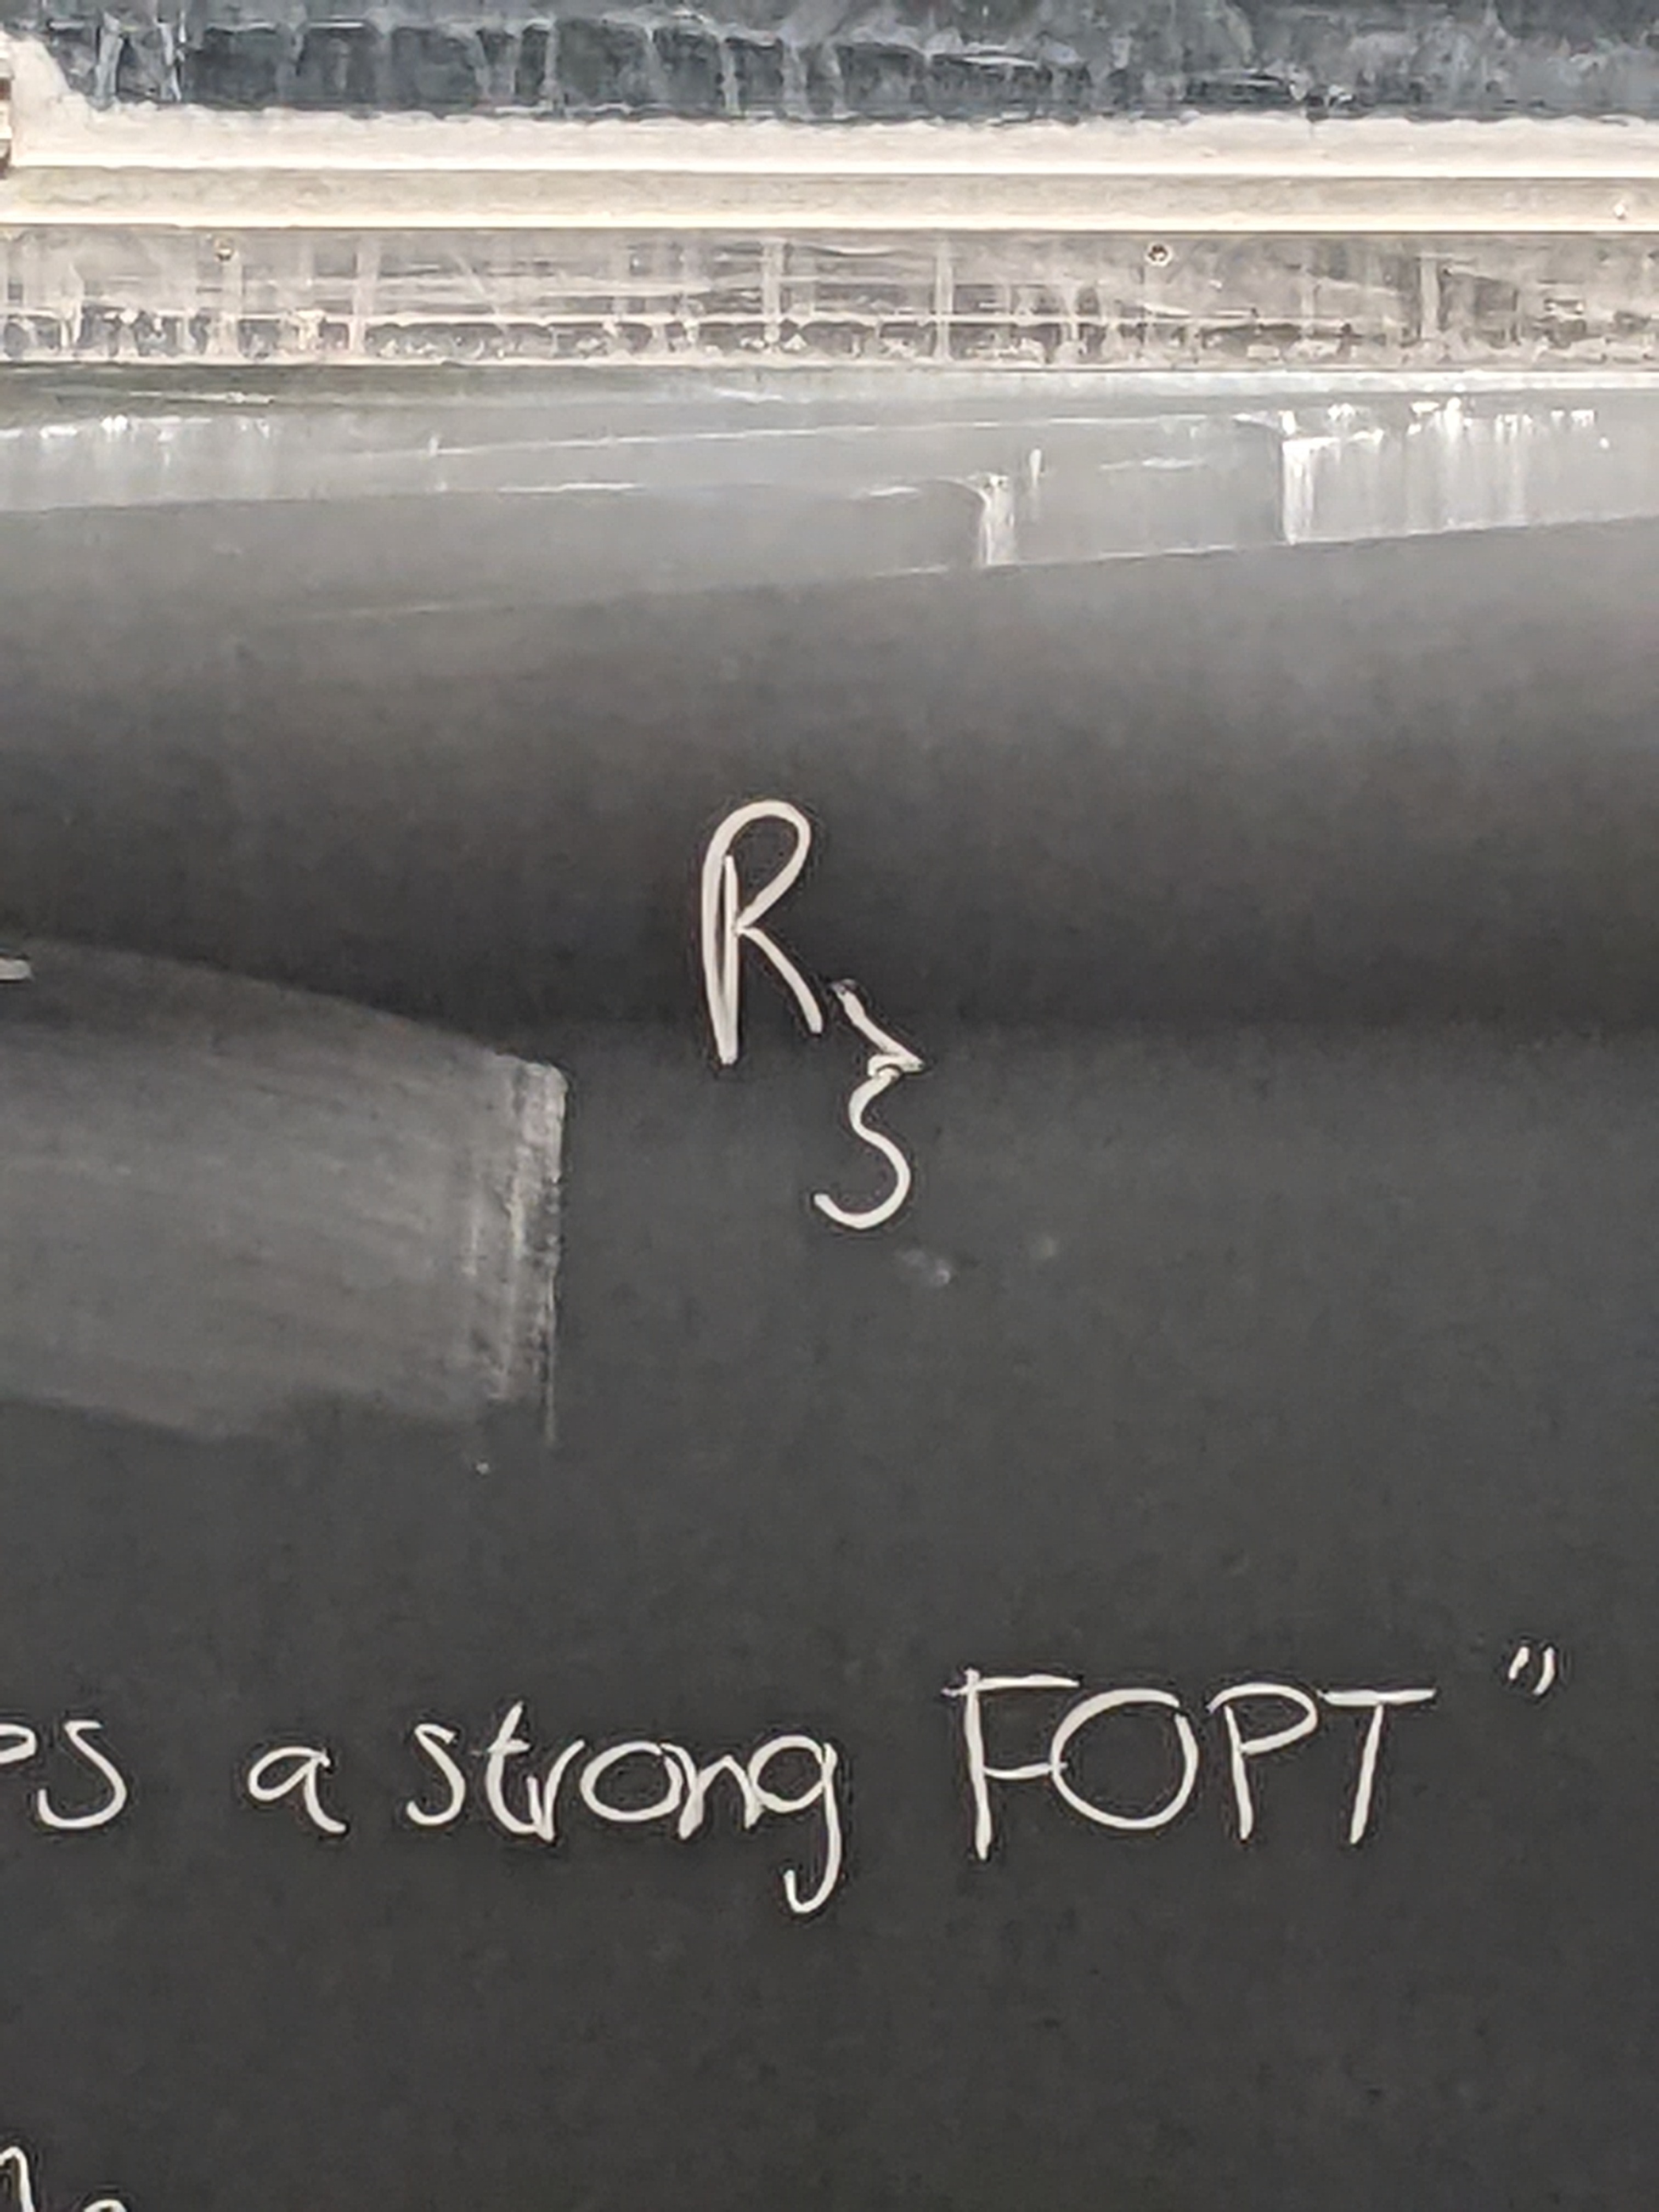 R
S
es a strong FOPT"